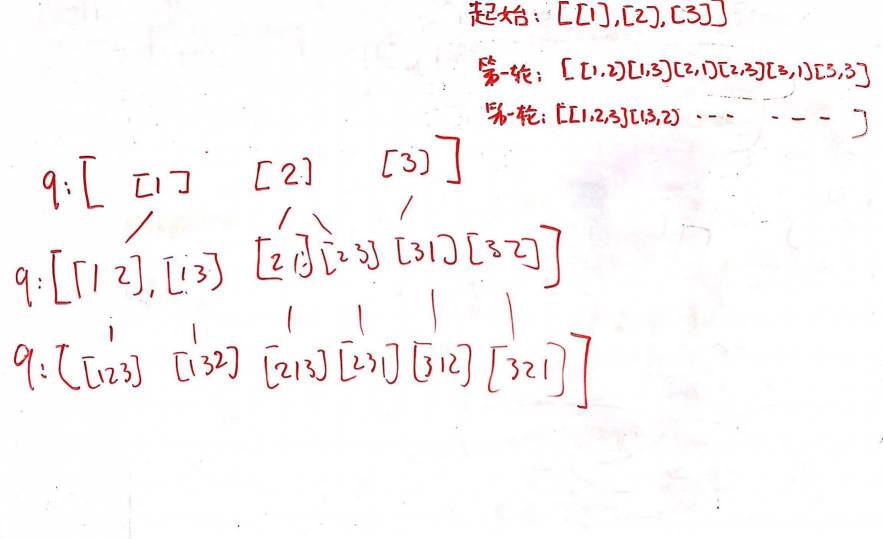 起始: [[1],[2],[3]]
第一轮: [[1,2][1,3][2,1][2,3][3,1][3,3]
第一轮: [[1,2,3][1,3,2) --- --- ]
q:[ [1] [2] [3] ]
q:[[1 2],[13] [21][23] [31] [32]]
q:[[123] [132] [213] [231] [312] [321]]